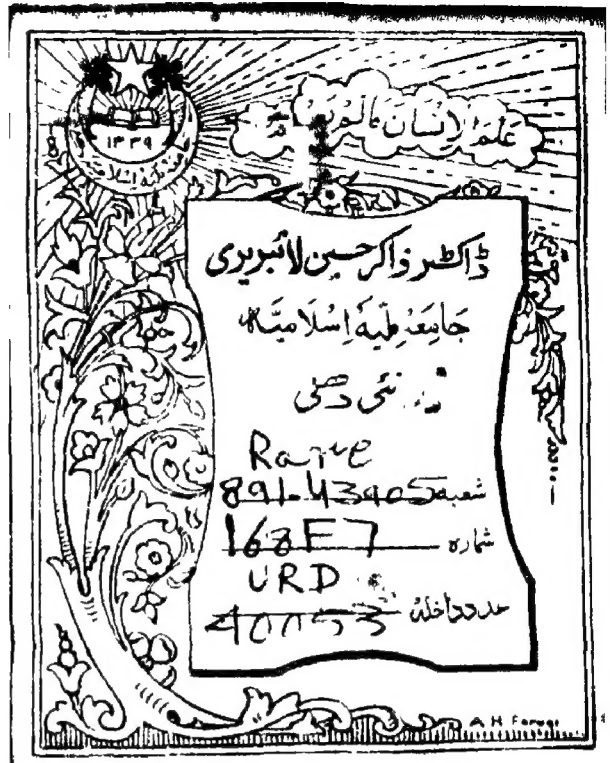 ۱۳۳۹
عَلَّمَ الْاِنْسَانَ مَا لَمْ
ڈاکٹر ذاکر حسین لائبریری
جَامِعَہ مِلّیہ اِسْلَامیَّہ
نئی دھلی
Rare
شعبہ 891.43905
شمارہ 168F7
URD
عدد داخلہ 40053
A H Faruqi